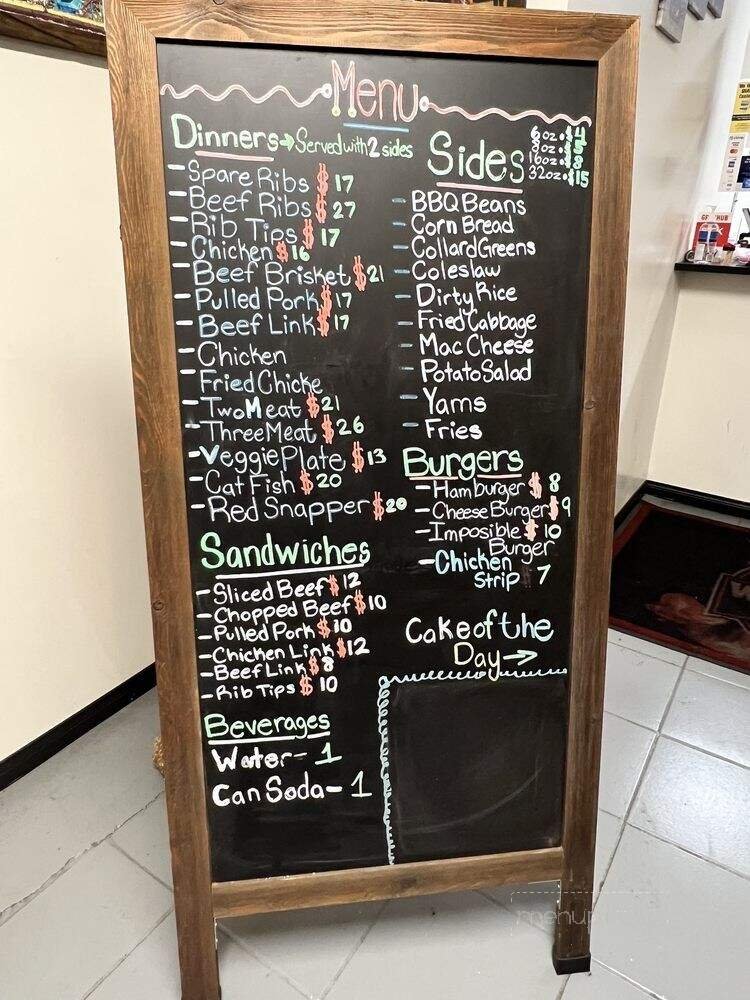 Menu
Dinners → Served with 2 sides
- Spare Ribs $17
- Beef Ribs $27
- Rib Tips $17
- Chicken $16
- Beef Brisket $21
- Pulled Pork $17
- Beef Link $17
- Chicken
- Fried Chicke
- Two Meat $21
- Three Meat $26
- Veggie Plate $13
- Cat Fish $20
- Red Snapper $20
Sandwiches
- Sliced Beef $12
- Chopped Beef $10
- Pulled Pork $10
- Chicken Link $12
- Beef Link $8
- Rib Tips $10
Beverages
Water- 1
Can Soda- 1
Sides
6oz.
8oz.
16oz. $8
32oz. $15
- BBQ Beans
- Corn Bread
- Collard Greens
- Coleslaw
- Dirty Rice
- Fried Cabbage
- Mac Cheese
- Potato Salad
- Yams
- Fries
Burgers
- Hamburger $8
- Cheese Burger $9
- Imposible $10
Burger
- Chicken
Strip 7
Cake of the
Day →
menup